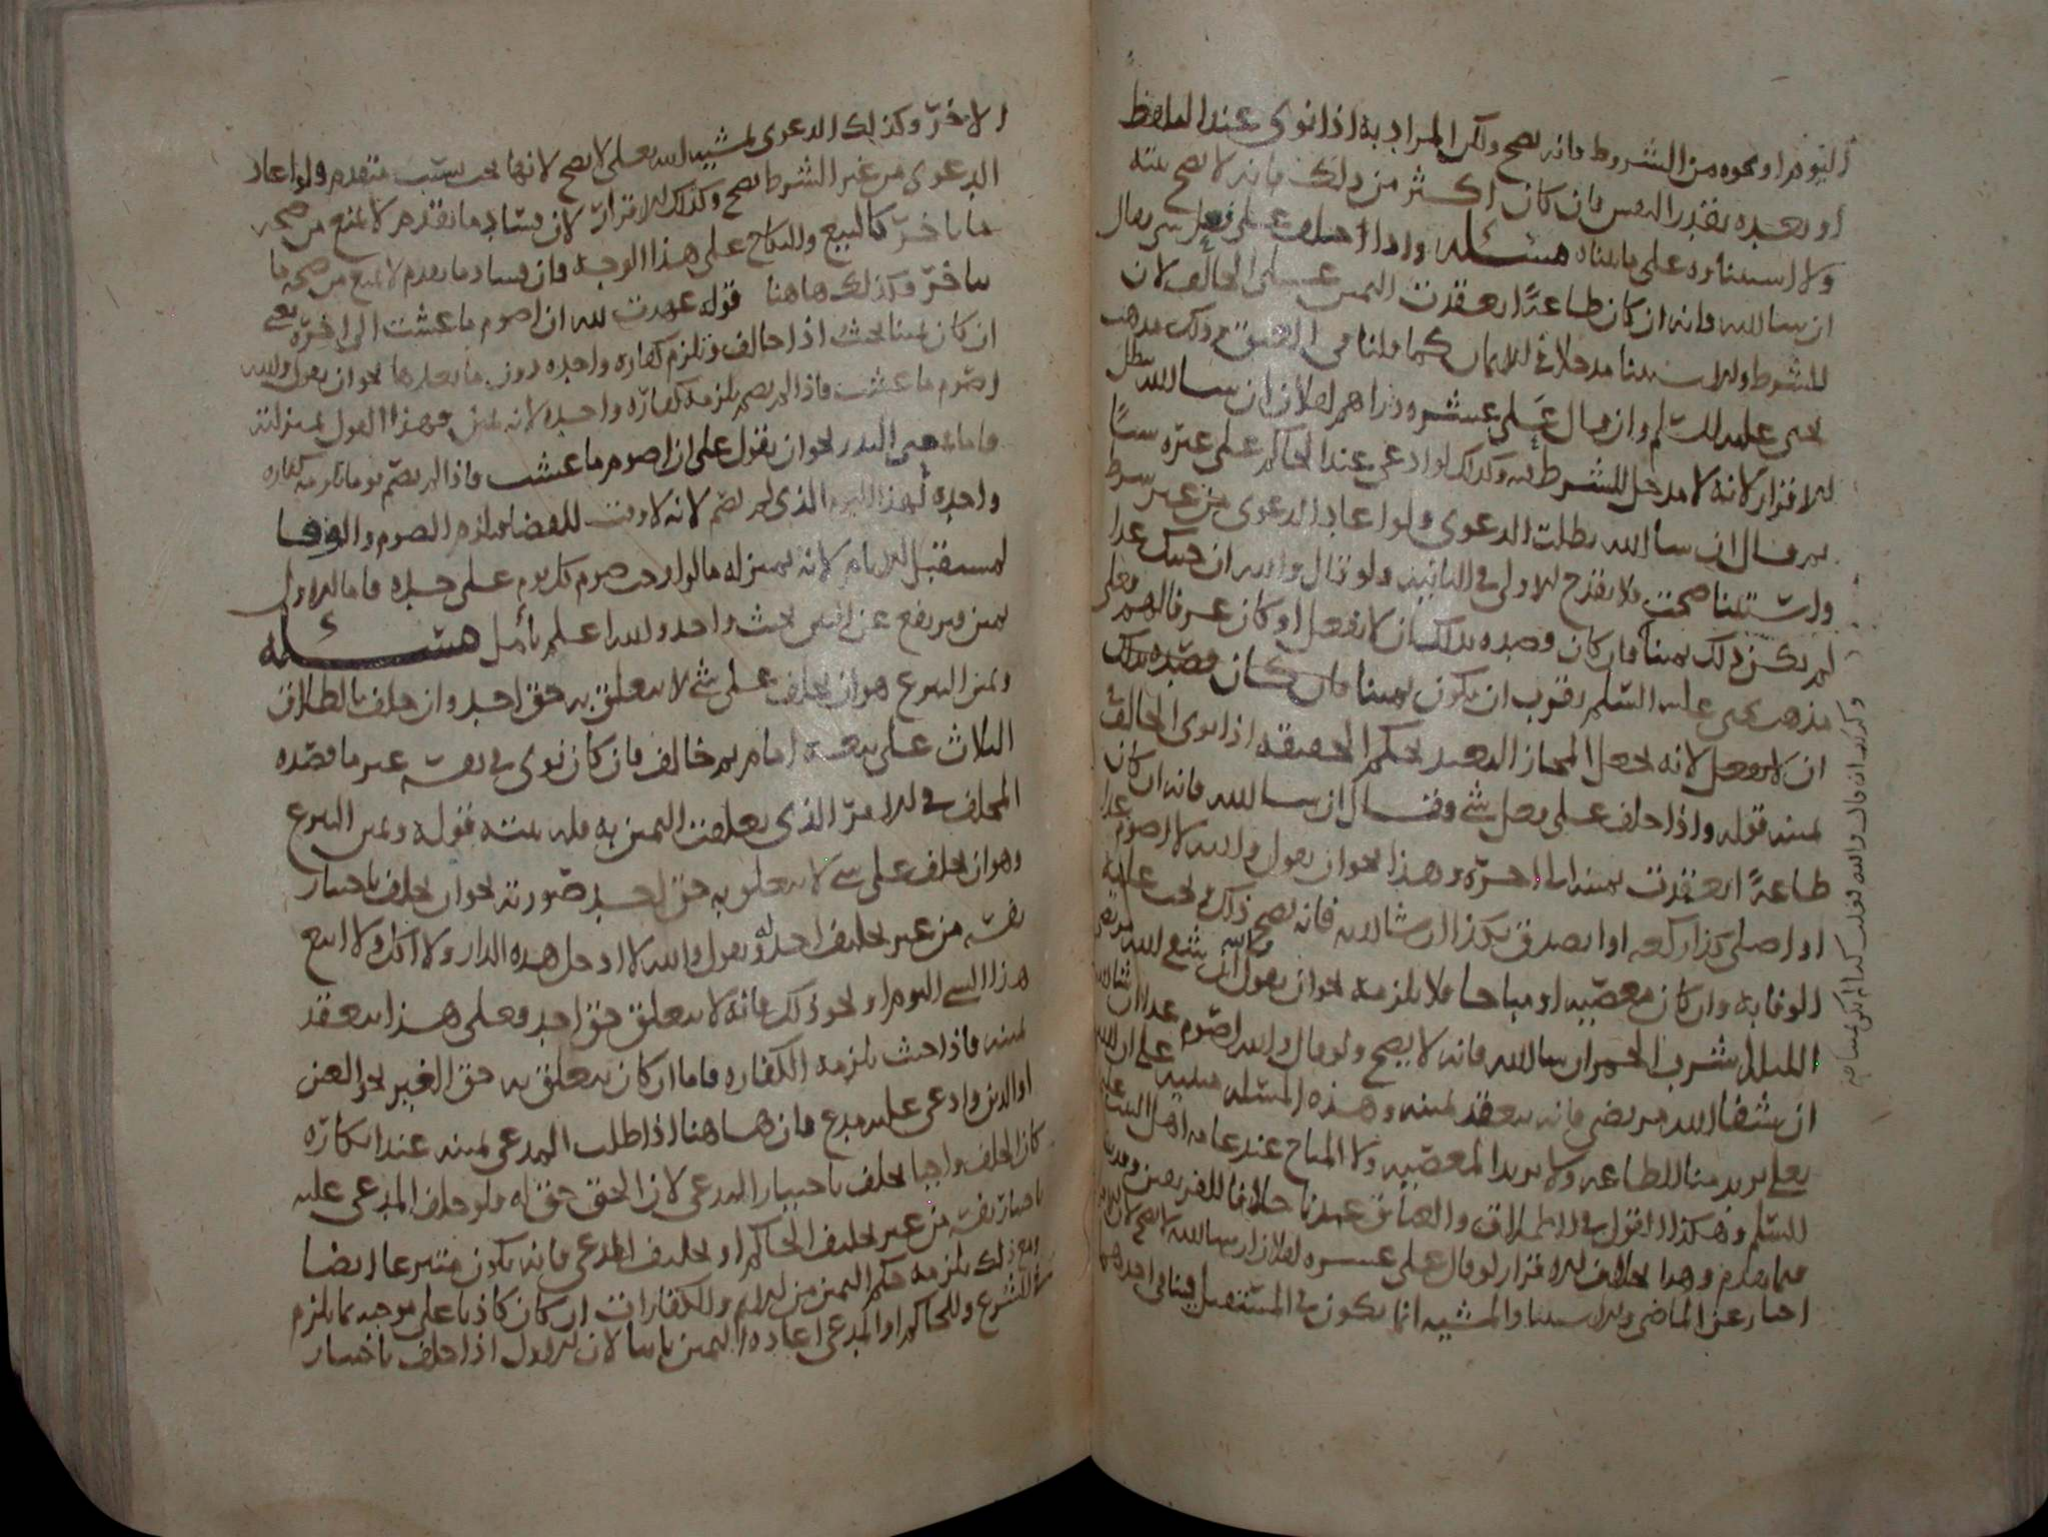 اليوم او نحوه من الشروط فانه يصح ولكن المراد به اذا نوى عند اللفظ
او بعده بقدر النفس فان كان اكثر من ذلك فانه لا يصح نيته
ولا استثناوه على ما بيناه مسئله واذا حلف على فعل شي فقال
ان شا الله فانه ان كان طاعة انعقدت اليمين على الحالف لان
للشرط والاستثنا مدخلا في الايمان كما قلنا في العتق وذلك مذهب
يحيى عليه السلم وان قال علي عشره دراهم لفلان ان شا الله بطل
الاقرار لانه لا مدخل للشرط فيه وكذلك لو ادعى عند الحاكم على غيره شيا
ثم قال ان شا الله بطلت الدعوى ولو اعاد الدعوى من غير شرط
واستثنا صحت ولا يقدح الاولى في الثانيه ولو قال والله ان جيتك غدا
لم يكن ذلك يمينا فان كان قصده بذلك ان لا يفعل او كان عرفا لهم فعلى
مذهب يحيى عليه السلم يقرب ان يكون يمينا فان كان قصده بذلك
ان لا يفعل لانه يجعل المجاز البعيد بحكم الحقيقه اذا نوى الحالف
يمينه قوله واذا حلف على فعل شي وقال ان شا الله فانه ان كان
طاعة انعقدت يمينه الى اخره وهذا نحو ان يقول والله لاصوم غدا
او اصلي كذا ركعه او اتصدق بكذا ان شا الله فانه يصح ذلك ويجب عليه
الوفا به وان كان معصيه او مباحا فلا يلزمه نحو ان يقول
الليل اشرب الخمر ان شا الله فانه لا يصح ولو قال والله اصوم غدا ان شا الله
ان شفا الله مريضي فانه ينعقد يمينه وهذه المسئله مبنيه على ان الله
تعلى يريد منا الطاعه ولا يريد المعصيه ولا المباح عند عامه اهل البيت عليهم
السلم وهكذا القول في الطلاق والعتاق عندنا خلافا للفريقين وقد بينا
فيما تقدم وهذا بخلاف الاقرار لو قال علي عشره لفلان ان شا الله لا يصح لان الاقرار
اخبار عن الماضي والاستثنا والمشيه انما يكون في المستقبل فينافي احدهما
وكذلك ان قال والله قولك كذا لم يكن يمينا
الاخر وكذلك الدعوى بمشيه الله تعلى لا يصح لانها تجب بسبب متقدم ولو اعاد
الدعوى من غير الشرط يصح وكذلك الاقرار لان فساد ما تقدم لا يمنع من صحه
ما تاخر كالبيع والنكاح على هذا الوجه فان فساد ما تقدم لا يمنع من صحه ما
تاخر وكذلك هاهنا قوله عهدت لله ان اصوم ما عشت الى اخره يعني
ان كان يمينا يحنث اذا خالف وتلزم كفاره واحده دون ما بعدها نحو ان يقول والله
اصوم ما عشت فاذا لم يصم يلزمه كفاره واحده لانه يمين وهذا القول بمنزلته
فاما في النذر نحو ان يقول علي ان اصوم ما عشت فاذا لم يصم يوما تلزمه كفاره
واحده لهذا اليوم الذي لم يصم لانه لا وقت للقضا فيلزم الصوم والوفا
لمستقبل الايام لانه بمنزله ما لو اوجب صوم كل يوم على حده فاما الاول
يمين فيرتفع عن اليمين بحنث واحد والله اعلم تامل مسئله
ويمين التبرع هو ان يحلف على شي لا يتعلق به حق احد وان حلف بالطلاق
الثلاث على بيعه امام ثم خالف فان كان نوى في نفسه غير ما قصده
المحلف في الامر الذي تعلقت اليمين به فله نيته قوله ويمين التبرع
وهو ان يحلف على شي لا يتعلق به حق احد صورته نحو ان يحلف باختيار
نفسه من غير تحليف احد له ويقول والله لا ادخل هذه الدار ولا اكل ولا ابيع
هذا الشي اليوم او نحو ذلك فانه لا يتعلق حق احد فعلى هذا ينعقد
يمينه فاذا حنث يلزمه الكفاره فاما ان كان يتعلق به حق الغير نحو العين
او الدين وادعى عليه مدع فان هاهنا اذا طلب المدعي يمينه عند انكاره
كان الحلف واجبا يحلف باختيار المدعي لان الحق حق له فلو حلف المدعى عليه
باختيار نفسه من غير تحليف الحاكم او تحليف المدعي فانه يكون متبرعا ايضا
ومع ذلك يلزمه حكم اليمين من الاثم والكفارات ان كان كاذبا على موجبه ما يلزم
في الشرع وللحاكم او المدعي اعاده اليمين ثانيا لان الاول اذا حلف باختيار